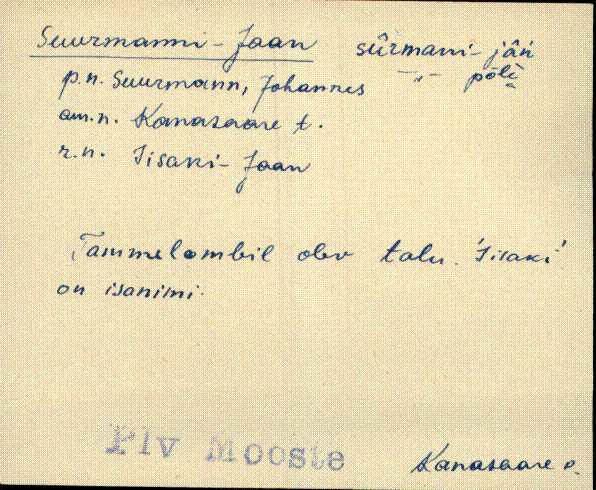 Suurmanni-Jaan sūrmani-jāń
p.n. Suurmann, Johannes —„— põlè
am.n. Kanassaare t.
r.n. Iisaki-Jaan
Tammelombil olev talu. 'Iisaki'
on isanimi.
Plv Mooste
Kanassaare